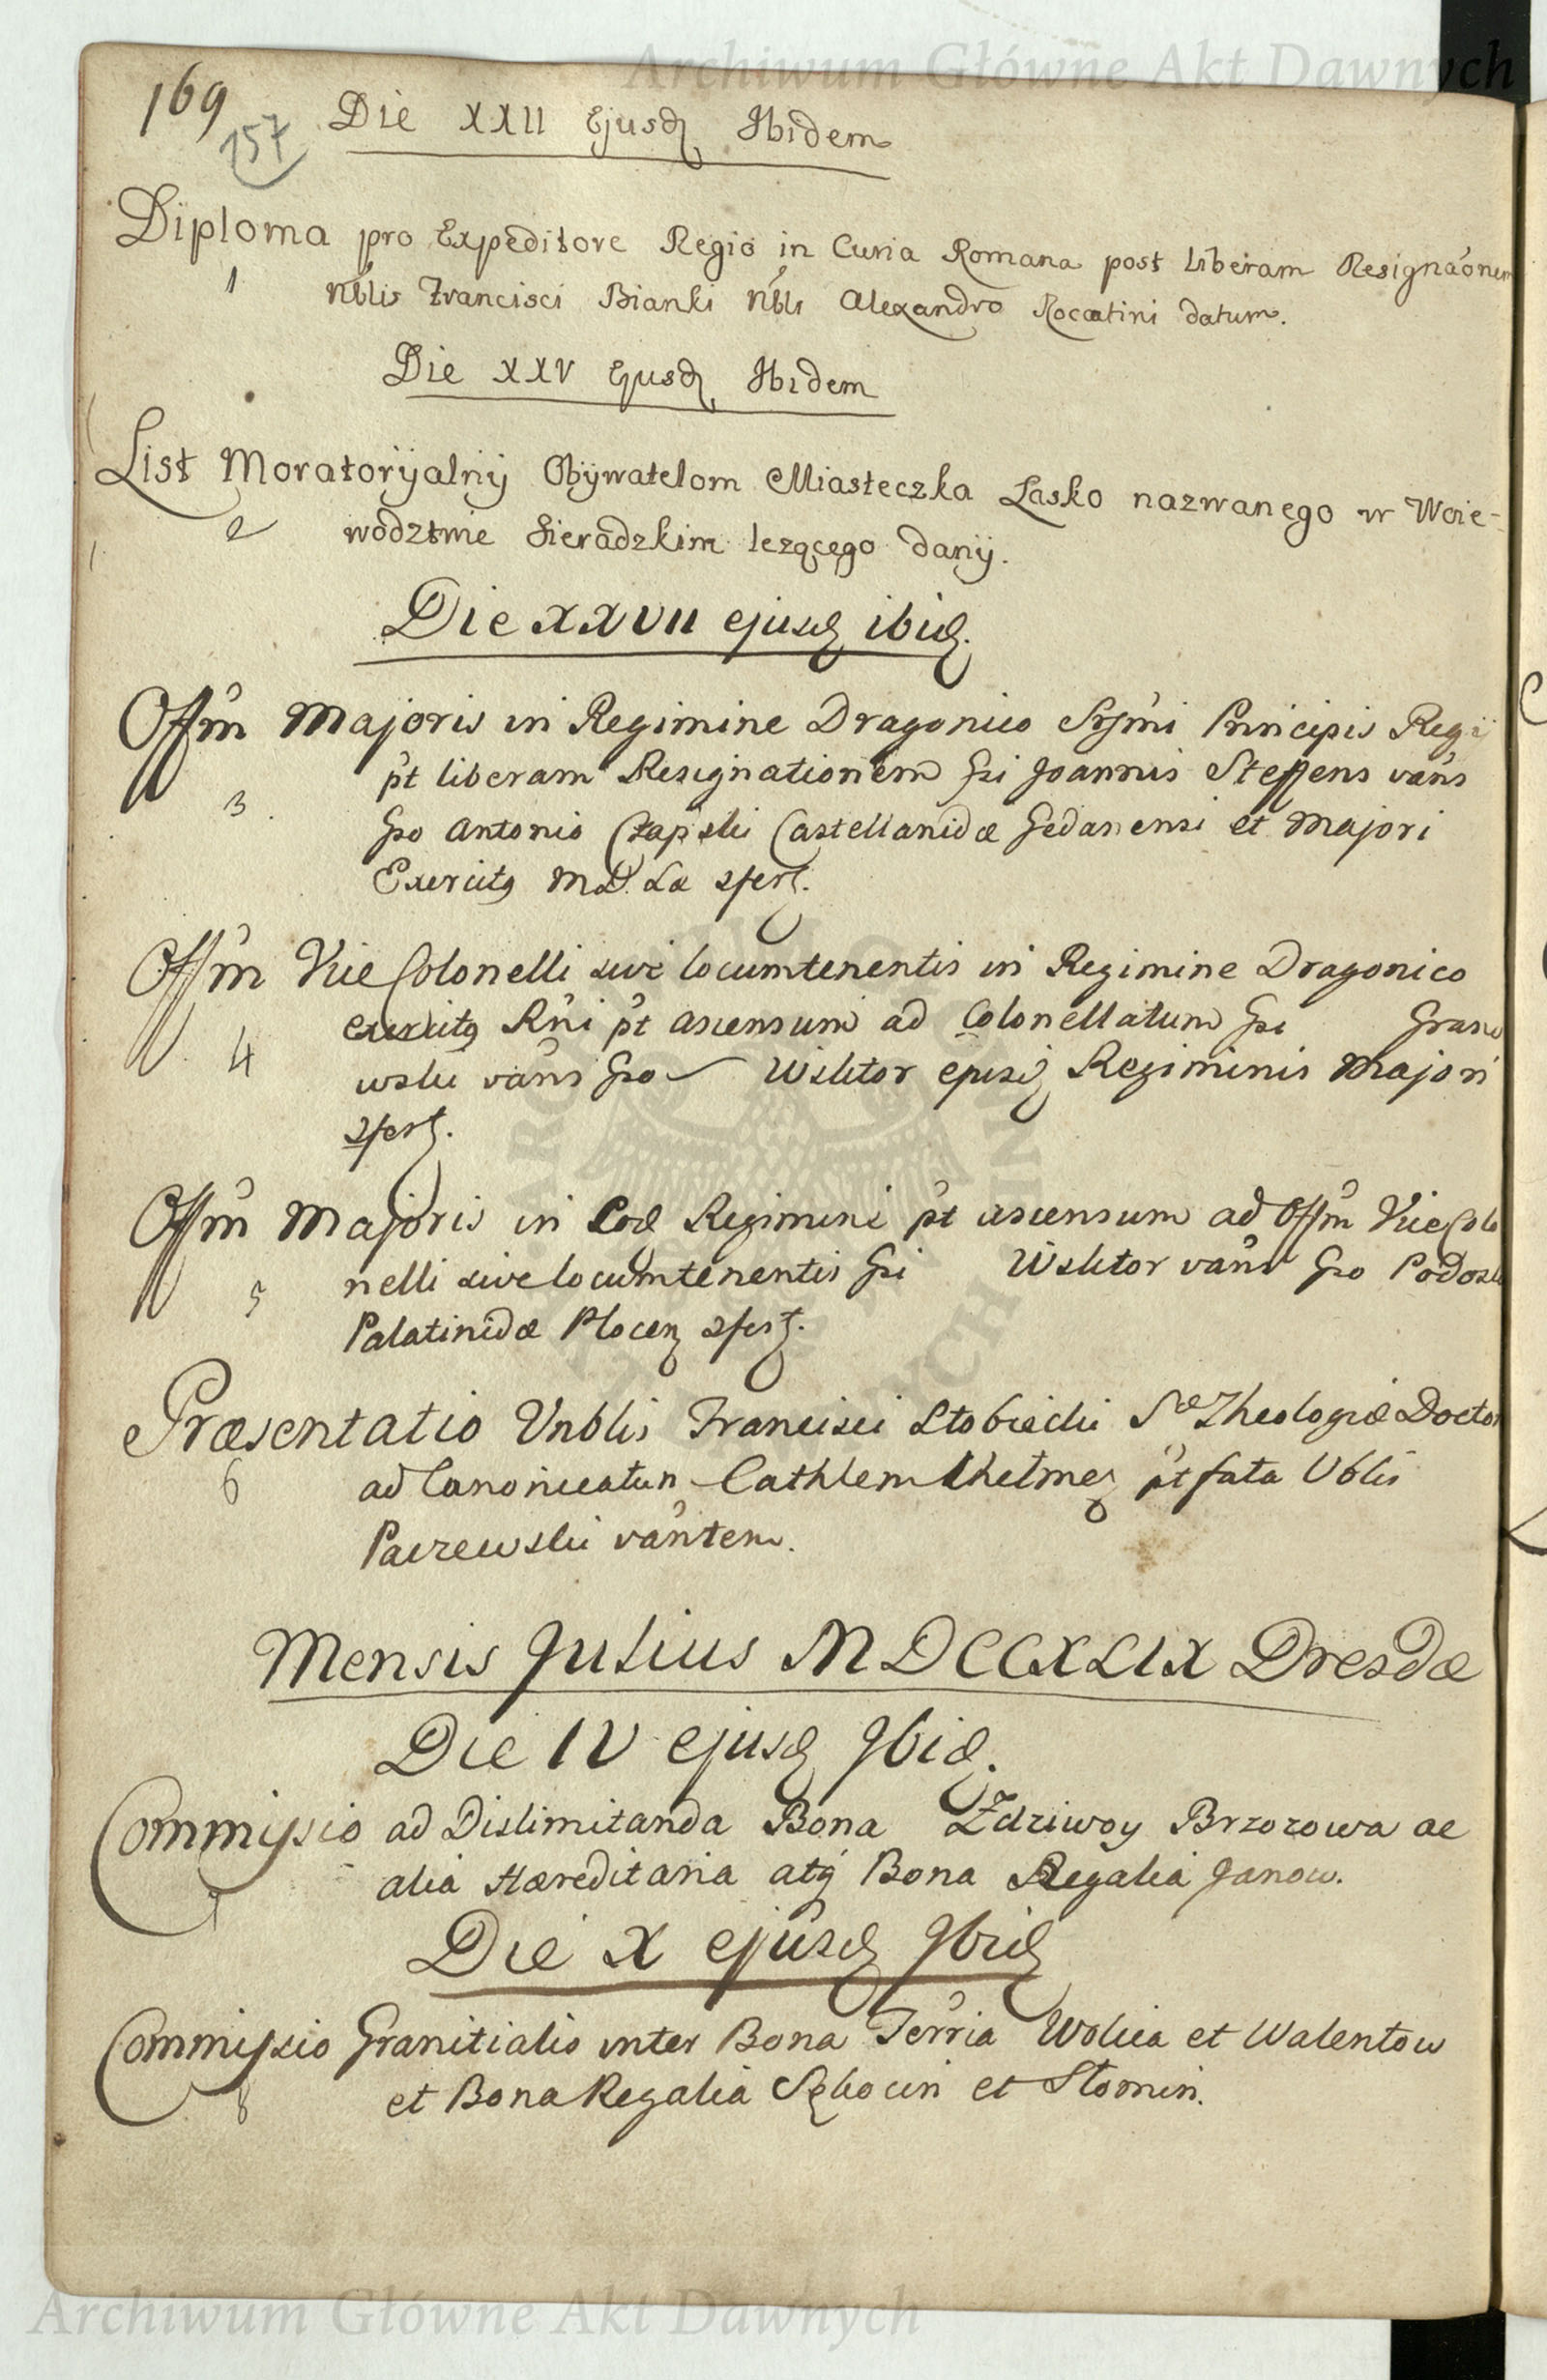 Archiwum Główne Akt Dawnych
169
157
Die XXII Ejusd Ibidem
Diploma pro Expeditore Regio in Curia Romana post liberam Resignãonem
1
Nblis Francisci Bianki Nbli Alexandro Rocatini datum.
Die XXV Ejusd Ibidem
List Moratoryalny Obywatelom Miasteczka Lasko nazwanego w Woie-
2
wodztwie Sieradzkim lezącego dany.
Die XXVII ejusd ibid.
Offm Majoris in Regimine Dragonico Srsmi Principis Regij
pt liberam Resignationem Gsi Joannis Steffens vans
3
Gso Antonio Czapski Castellanidæ Gedanensi et Majori
Exercitq M.D. Læ sfert.
Offm Vice Colonelli sive locumtenentis in Regimine Dragonico
exercitq Rni pt ascensum ad Colonellatum Gsi
4
wski vans Gso Wiktor ejusd Regiminis Majori
sfert.
Offm Majoris in Eod Regimine pt ascensum ad Offm Vice Colo
nelli sive locumtenentis Gsi Wiktor vans Gso
5
Palatinidæ Plocen sfert.
Præsentatio Vnblis Francisci Stobiecki Sæ Theologiæ Doctor
6
ad Canonicatum Cathlem Chelmen pt fata Vblis
vantem.
Mensis Julius MDCCXLIX Dresdæ
Die IV ejusd Ibid.
Commissio ad Dislimitanda Bona Zdziwoy Brzozowa ac
alia Hæreditaria atq Bona Regalia Janow.
7
Die X ejusd Ibid
Commissio Granitialis inter Bona Terria Wolica et Walentow
et Bona Regalia Sękocin et Słomin.
8
Archiwum Główne Akt Dawnych